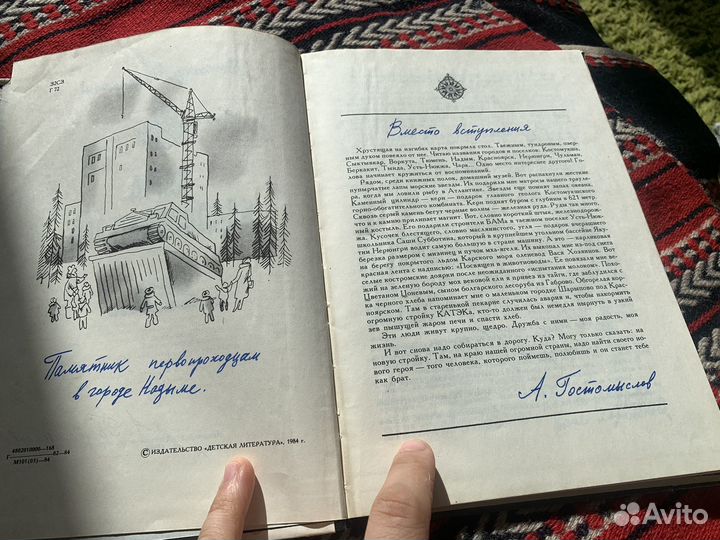 ЗЗСЗ
Г 72
Памятник первопроходцам
в городе Надыме.
4802010000—168
Г 62—84
М101(03)—84
© ИЗДАТЕЛЬСТВО «ДЕТСКАЯ ЛИТЕРАТУРА», 1984 г.
Вместо вступления
Хрустящая на изгибах карта покрыла стол. Таежным, тундровым, озер-
ным духом повеяло от нее. Читаю названия городов и поселков. Костомукша,
Сыктывкар, Воркута, Тюмень, Надым, Красноярск, Нерюнгри, Чульман,
Беркакит, Тында, Усть-Нюкжа, Чара... Одно место интереснее другого! Го-
лова начинает кружиться от волнения.
Рядом, среди книжных полок, домашний музей. Вот распахнули жесткие
пупырчатые лапы морские звезды. Их подарили мне матросы нашего траулe-
ра, когда мы ловили рыбу в Атлантике. Звезды еще помнят запах океана.
Каменный цилиндр — керн — подарок главного геолога Костомукшского
горно-обогатительного комбината. Керн поднят буром с глубины в 621 метр.
Сквозь серый камень бегут черные волны — железная руда. Руда так много,
что и к камню прилипает магнит. Вот, словно короткий штык, железнодорож-
ный костыль. Его подарили строители БАМа в таежном поселке Усть-Нюк-
жа. Кусочек блестящего, словно маслянистого, угля — подарок нерюнгринского
школьника Саши Субботина, который в крупнейшем угольном бассейне Яку-
тии Нерюнгри водит самую большую в стране машину. А это — карликовая
березка размером с мизинец и пучок мха-ягеля. Их выкопал мне из-под снега
на берегу покрытого льдом Карского моря оленевод Вася Хозяинов. Вот
красная лента с надписью: «Посвящен в животноводы». Ее повязали мне ве-
селые костромские доярки после неожиданного «испытания молоком». Похо-
жий на зеленую бороду мох вековой ели я привез из тайги, где заблудился с
Цветаном Цоневым, сыном болгарского лесоруба из Габрово. Обгорелая кор-
ка черного хлеба напоминает мне о маленьком городке Шарыпово под Крас-
ноярском. Там в старенькой пекарне случилась авария и, чтобы накормить
огромную стройку КАТЭКа, кто-то должен был немедля нырнуть в давний
зев пышущей жаром печи и спасти хлеб.
Эти люди живут крупно, щедро. Дружба с ними — моя радость, моя
жизнь.
И вот снова надо собираться в дорогу. Куда? Могу только сказать: на
новую стройку. Там, на краю нашей огромной страны, надо найти нового сво-
его героя — того человека, которого поймешь, полюбишь и он станет тебе
как брат.
А. Гостомыслов
Avito